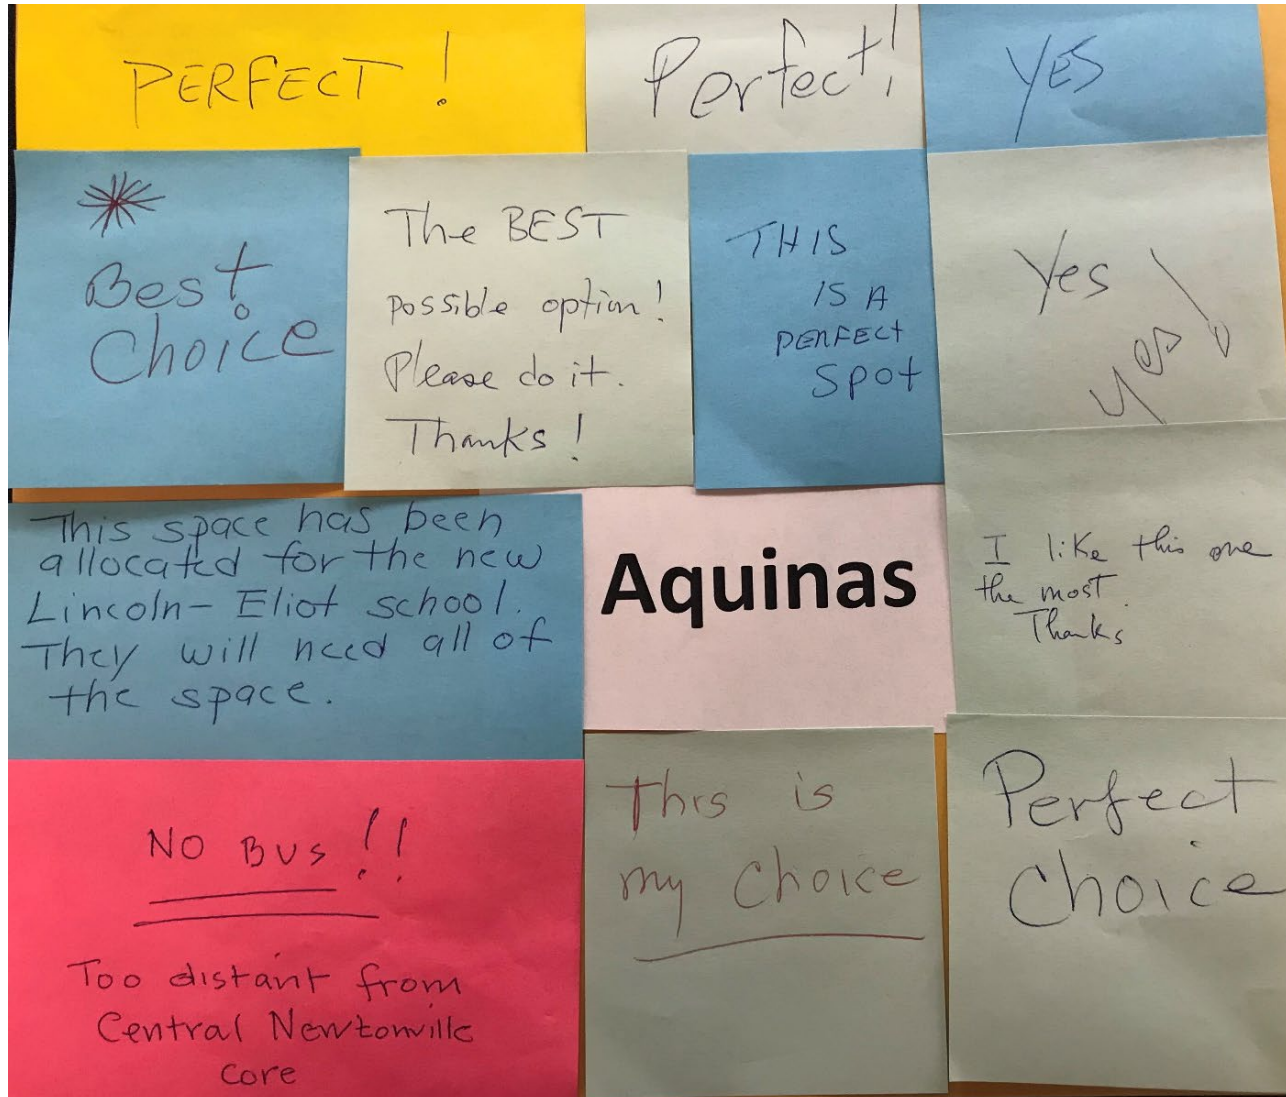 PERFECT!
Perfect!
YES
Best
Choice
The BEST
possible option!
Please do it.
Thanks!
THIS
IS A
PERFECT
SPOT
Yes
yes!
This space has been
allocated for the new
Lincoln- Eliot school.
They will need all of
the space.
Aquinas
I like this one
the most.
Thanks
NO BUS!!
Too distant from
Central Newtonville
core
This is
my choice
Perfect
Choice